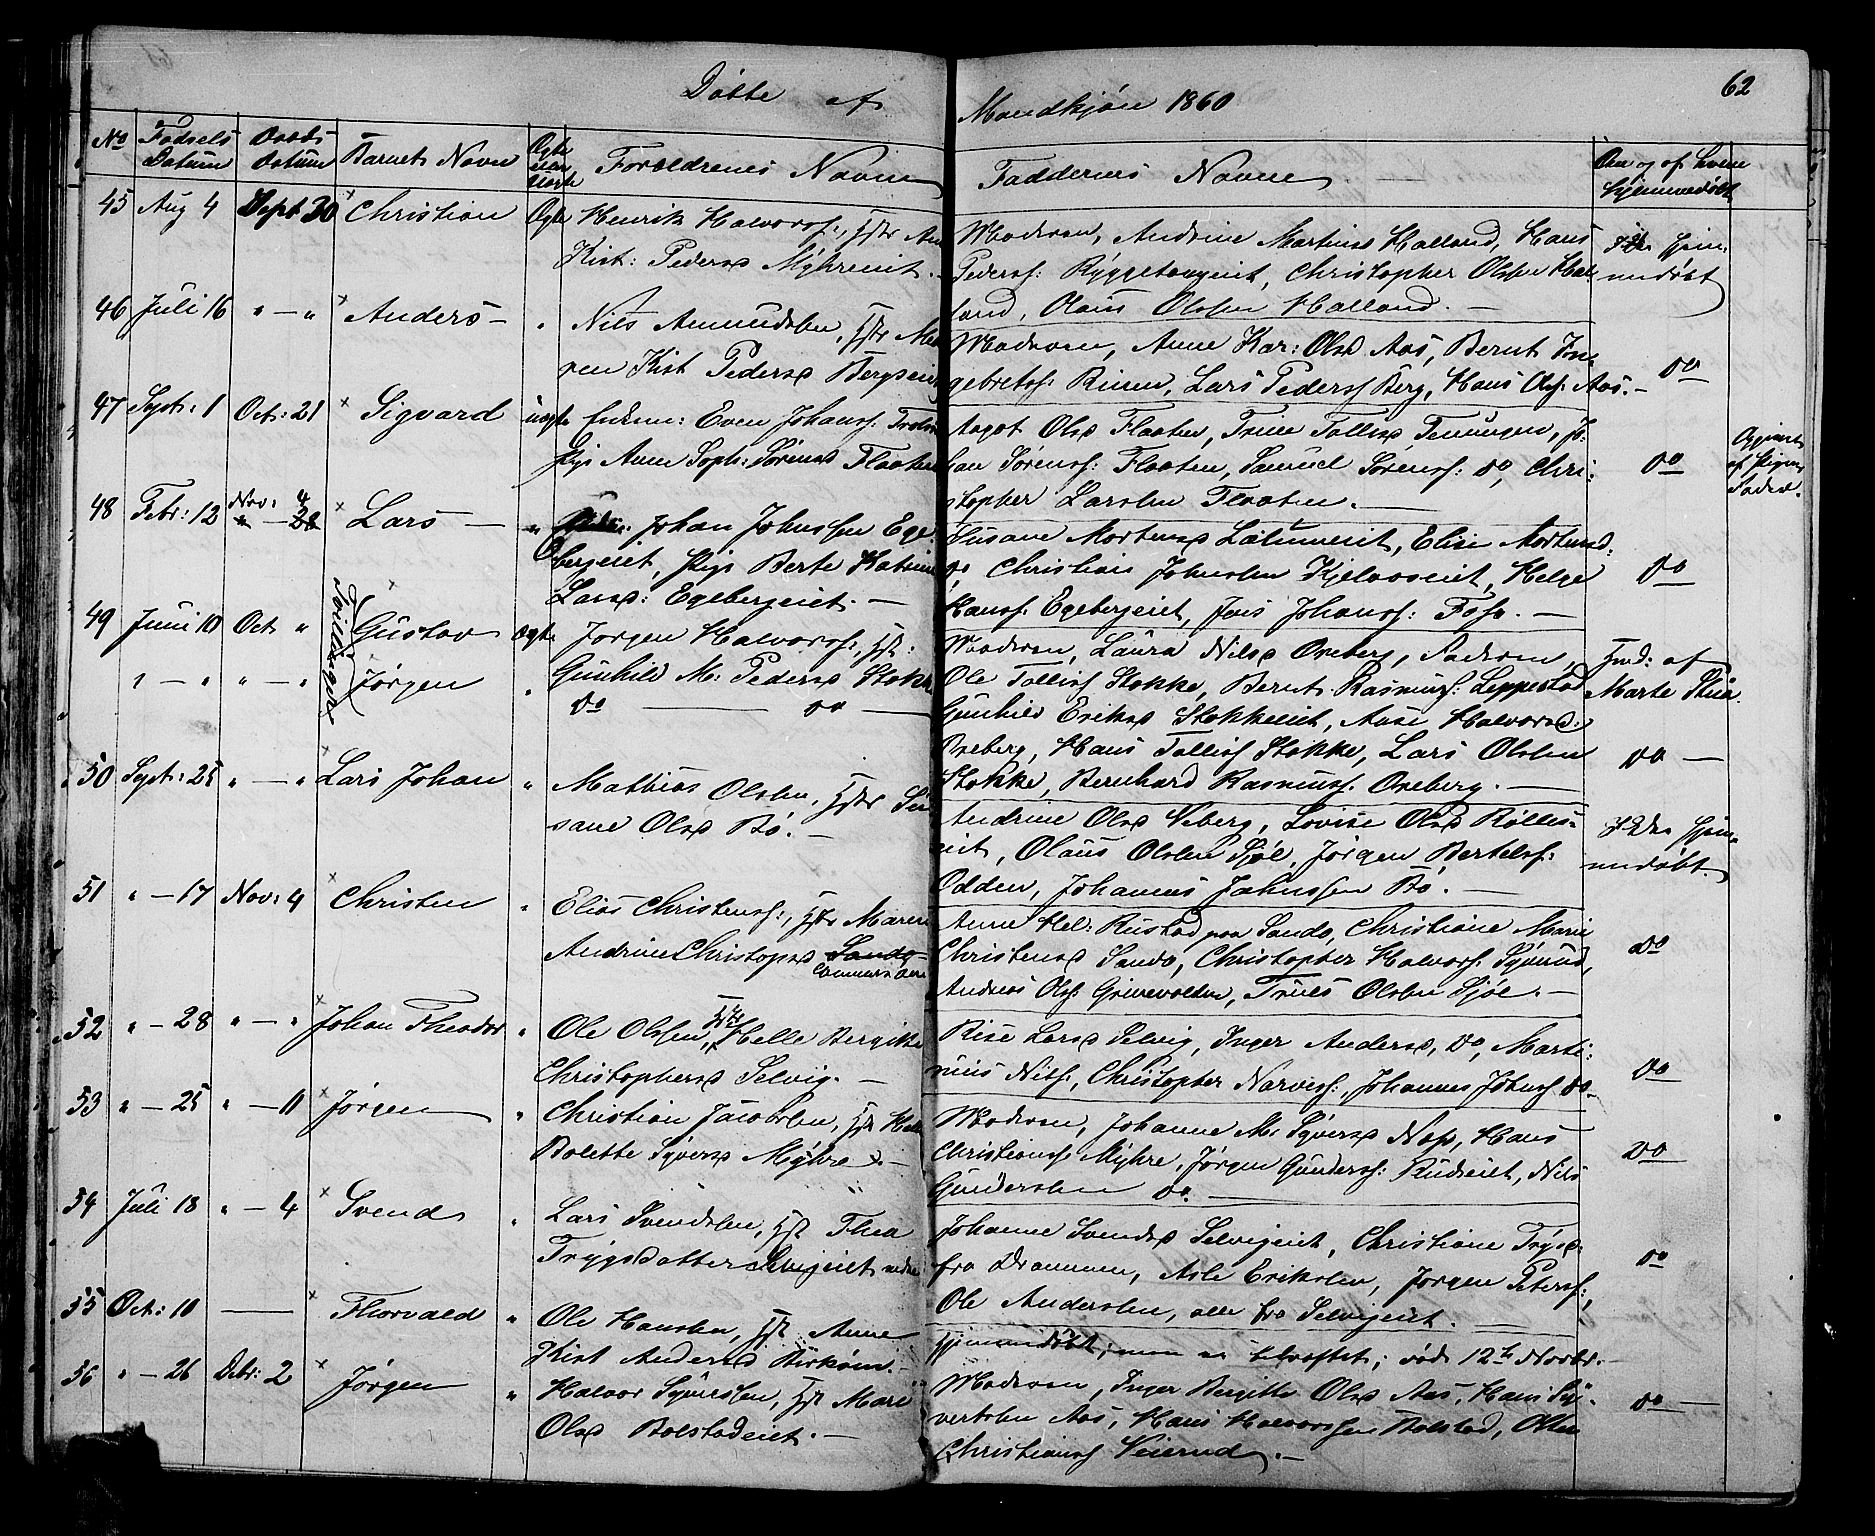 Døbte af
Mandkjön 1860
62
No
Fødsels Datum
Daabs Datum
Barnets Navn
Ægte eller Uægte
Forældrenes Navne
Faddernes Navne
Om og af hvem hjemmedøbt
45 Aug 4 Sept 30 Christian Ægte Henrik Halvorss:, Hstr An
Kirst: Pedersd Myhreeiet. -
Moderen, Andrine Martinsd Halland, Hans
Pederss: Ryggetangeiet, Christopher Olsen Hal-
land, Olaus Olssen Halland. -
Ikke hjem-
medøbt
46 Juli 16 " - " Anders - " Nils Amundsen, Hstr Ma
ren Kirst Pedersd Bergseiet
Moderen, Anne Kar: Olsd Aas, Bernt In-
gebretss: Rinen, Lars Pederss Berg, Hans Olss: Aas. -
do
47 Septr: 1 Oct: 21 Sigvard uægte Enkem: Even Johanss:
Pige Anne Soph: Sørensd Flaaten
Aagot Olsd Flaaten, Trine Tollefsd Jo-
han Sørenss: Flaaten, Samuel Sørenss: do, Chri-
stopher Larssen Flaaten. -
do
Opgivet
af Pigens
Fader.
48 Febr: 12 Nov: 4 Lars - " Johan Johnssen Ege-
bergeiet, Pige Berte Katrine
Larsd: Egebergeiet. -
Susane Mortensd Elise Mortensd:
do Christian Johnsen Helge
Hanss: Egebergeiet, Jens Johanss: Foss. -
do
49 Juni 10 Oct " Tvillinger Gustav Ægte Jørgen Halvorss:, Hst:
" - " " - " Jørgen " Gunhild M: Pedersd Stokke
do - do -
Moderen, Laura Nilsd Oreberg, Faderen,
Ole Tollefss Stokke, Bernt Rasmuss: Leppestad
Gunhild Eriksd Stokkeeiet, Anne Halvorsd:
Oreberg, Hans Tollefss Stokke, Lars Olssen
Stokke, Bernhard Rasmuss: Oreberg. -
Hmd: af
Marte
do -
50 Septr: 25 " - " Lars Johan " Mathias Olssen, Hstr Su
sane Olsd Bø. -
Andrine Olsd Viberg, Lovise Olsd Røllis-
eiet, Olaus Olssen Sjøl, Jørgen Bertelss:
Odden, Johannes Johnssen Bø. -
Ikke hjem-
medøbt.
51 " - 17 Nov: 4 Christen " Elias Christenss:, Hstr Maren
Andrine Christophsd Sando
Anne Hel: Rustad paa Sando, Christiane Marie
Christensd Sando, Christopher Halvorss:
Andreas Olss: Grinevolden, Truls Olssen Sjøl. -
do
52 " - 28 " - " Johan Theodor " Ole Olssen, Hstr Helle Bergitte
Christophersd Selvig. -
Rise Larsd Selvig, Inger Andersd, do, Marti-
nius Nilss:, Christopher Narvess:, Johannes Johnss do.
do
53 " - 25 " - 11 Jørgen " Christian Jacobsen, Hstr Helle
Bolette Syversd Myhre. -
Moderen, Johanne M: Syversd Næss, Hans
Christianss: Myhre, Jørgen Gunderss: Rudseiet, Nils
Gunderssen do. -
do
54 Juli 18 " - 4 Svend " Lars Svendsen, Hst Thea
Trygsdatter Selvigeiet
Johanne Svendsd Selvigeiet, Christiane Trygsd
fra Drammen, Asle Erikssen, Jørgen Peterss:,
Ole Anderssen, alle fra Selvigeiet. -
do
55 Oct: 10 - Thorvald " Ole Hanssen, Hst: Anne
Kirst Andersd
Hjemmedøbt, men ei bekræftet; død 12te Novbr. -
56 " - 26 Dcbr: 2 Jørgen " Halvor Syverssen, Hst Mari
Olsd Bolstadeiet. -
Moderen, Inger Bergitte Olsd Aas, Hans Sy-
vertsen Aas, Hans Halvorssen Bolstad, Olen
Christianss Veierud. -
do -